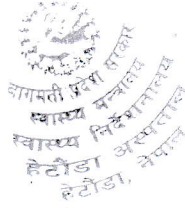 बागमती प्रदेश सरकार
स्वास्थ्य मन्त्रालय
स्वास्थ्य निर्देशनालय
हेटौंडा अस्पताल
हेटौंडा, नेपाल